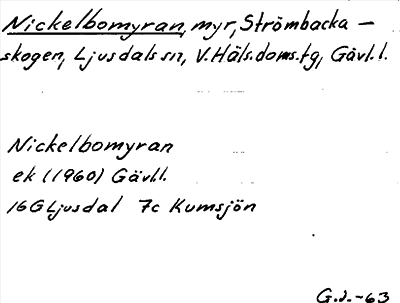 Nickelbomyran, myr, Strömbacka-
skogen, Ljusdals sn, V. Häls. doms. tg, Gävl. l.
Nickelbomyran
ek (1960) Gävl.l.
16G Ljusdal 7c Kumsjön
G.J.-63